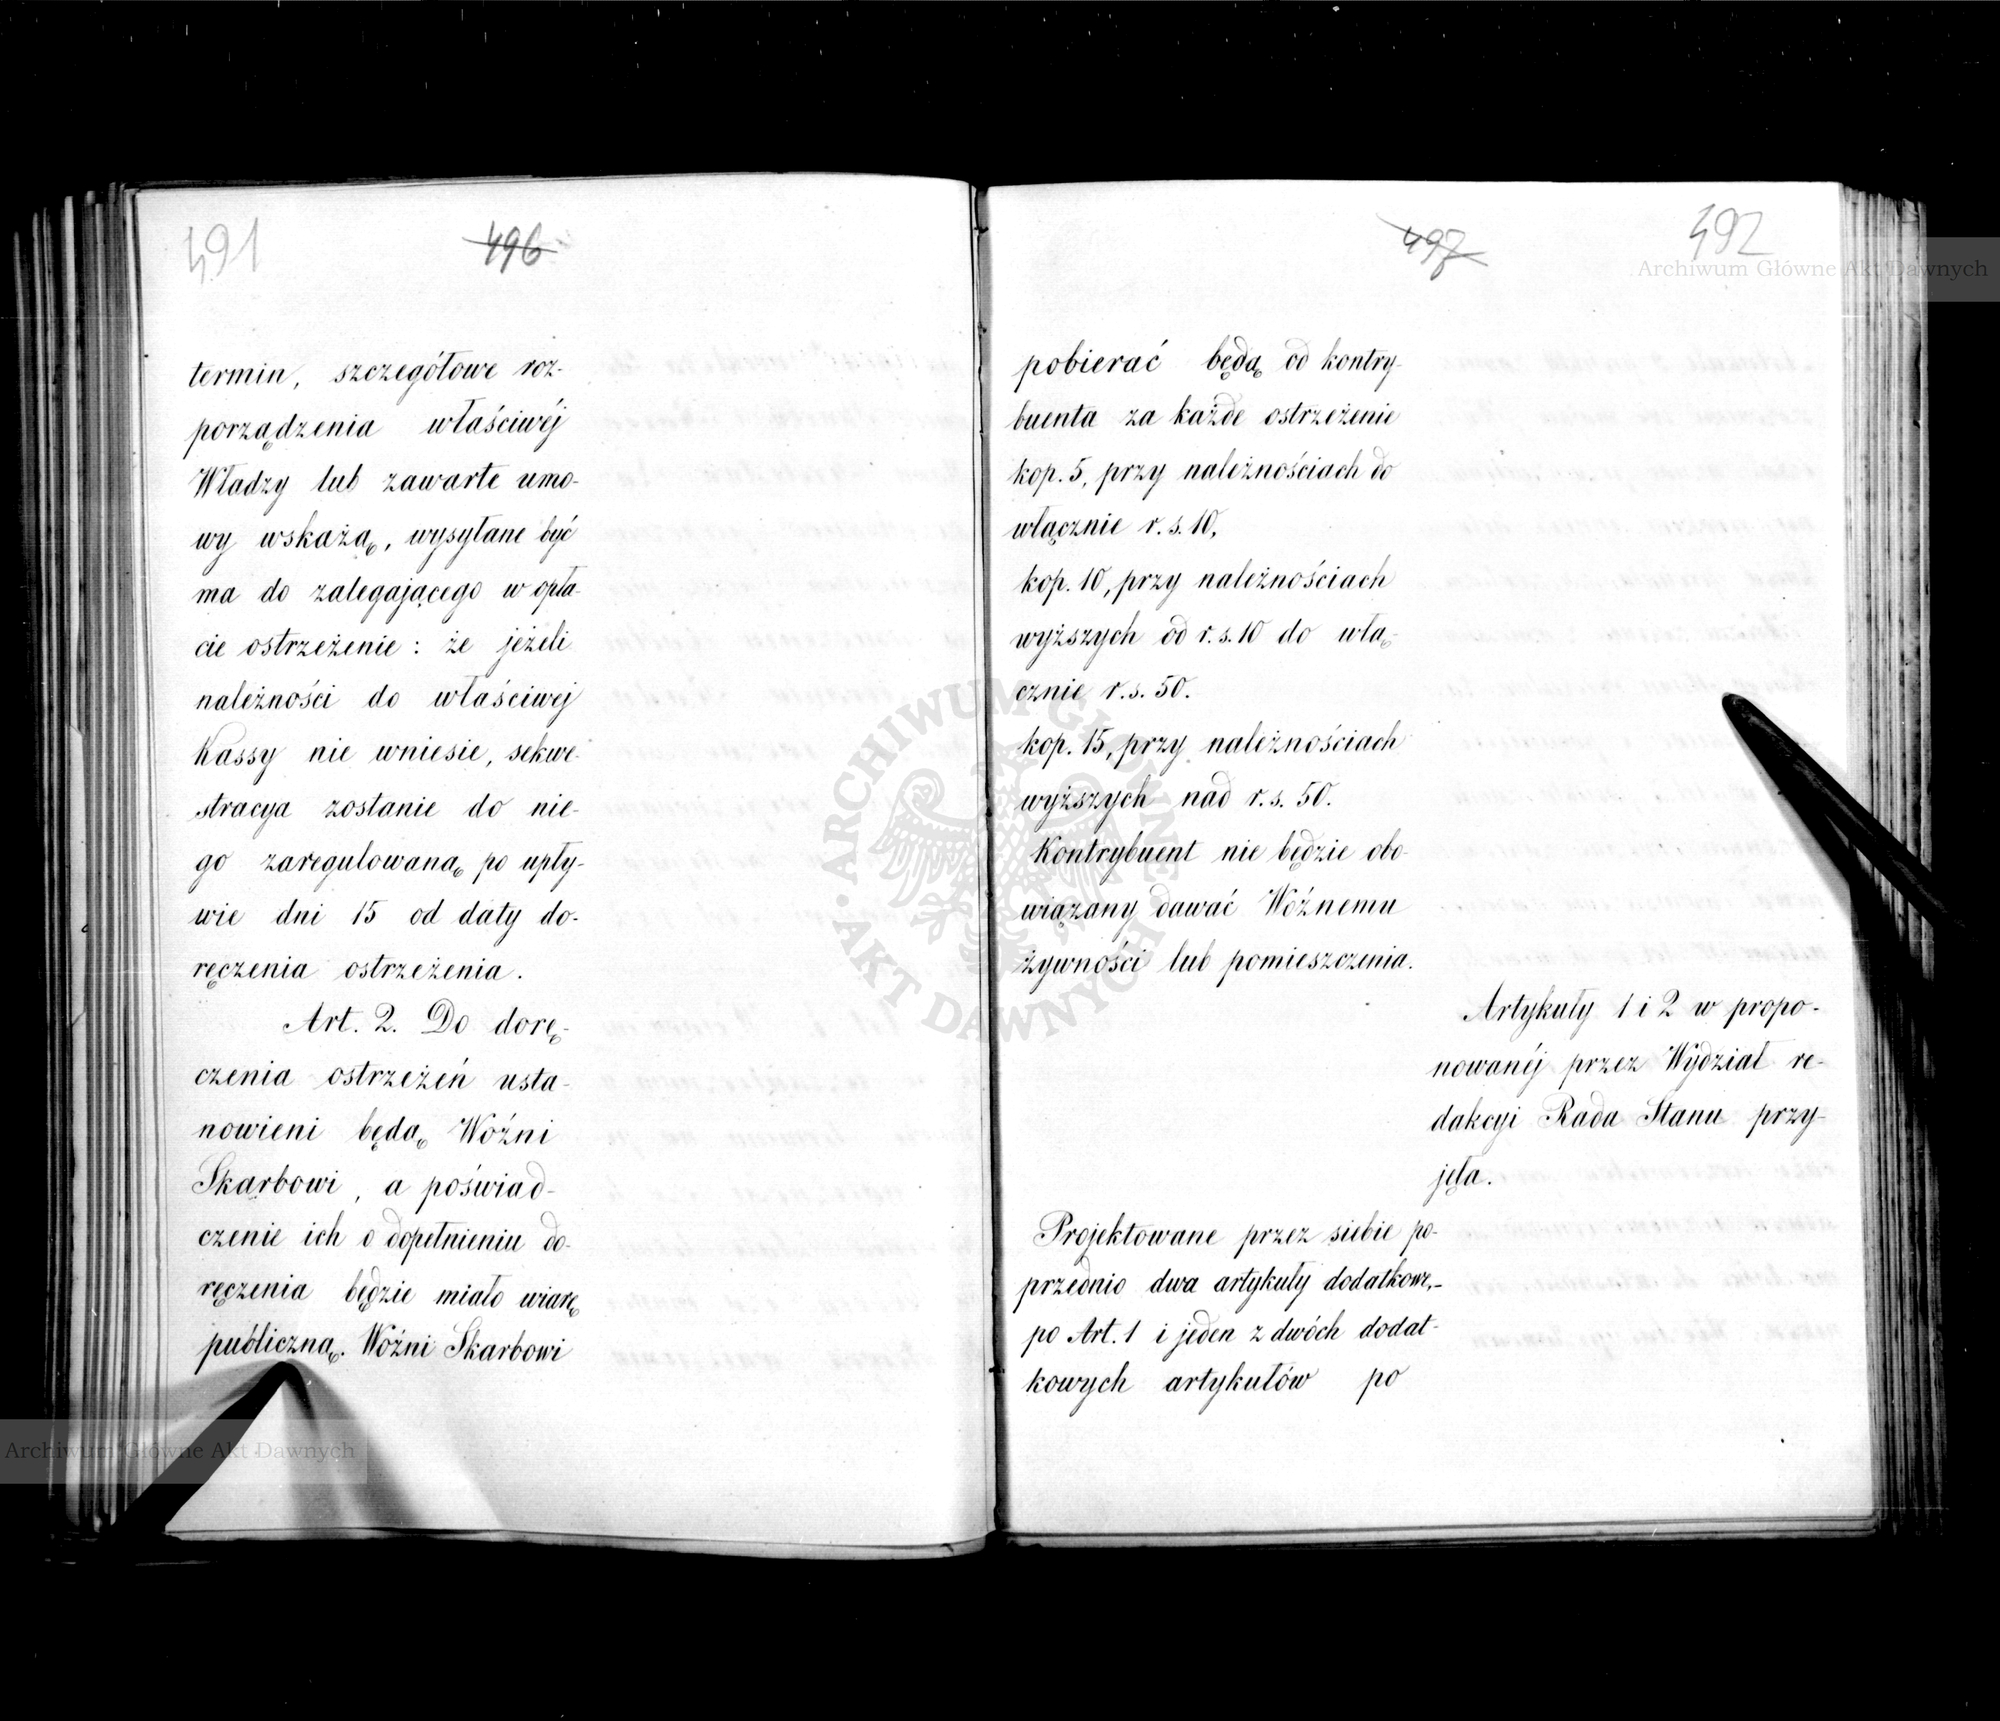 491
496
termin, szczegółowe roz-
porządzenia właściwéj
Władzy lub zawarte umo-
wy wskażą, wysyłane być
ma do zalegającego w opła-
cie ostrzeżenie: że jeżeli
należności do właściwej
Kassy nie wniesie, sekwe-
stracya zostanie do nie-
go zaregulowaną po upły-
wie dni 15 od daty do-
ręczenia ostrzeżenia.
Art. 2. Do dorę-
czenia ostrzeżeń usta-
nowieni będą Woźni
Skarbowi, a poświad-
czenie ich o dopełnieniu do-
ręczenia będzie miało wiarę
publiczną. Woźni Skarbowi
497
492
pobierać będą od kontry-
buenta za każde ostrzeżenie
kop. 5, przy należnościach do
włącznie r. s. 10,
kop. 10, przy należnościach
wyższych od r. s. 10 do włą-
cznie r. s. 50.
kop. 15, przy należnościach
wyższych nad r. s. 50.
Kontrybuent nie będzie obo-
wiązany dawać Woźnemu
żywności lub pomieszczenia.
Artykuły 1 i 2 w propo-
nowanéj przez Wydział re-
dakcyi Rada Stanu przy-
jęła.
Projektowane przez siebie po-
przednio dwa artykuły dodatkowe,-
po Art. 1 i jeden z dwóch dodat-
kowych artykułów po
Archiwum Główne Akt Dawnych
ARCHIWUM GŁÓWNE
• AKT DAWNYCH •
Archiwum Główne Akt Dawnych